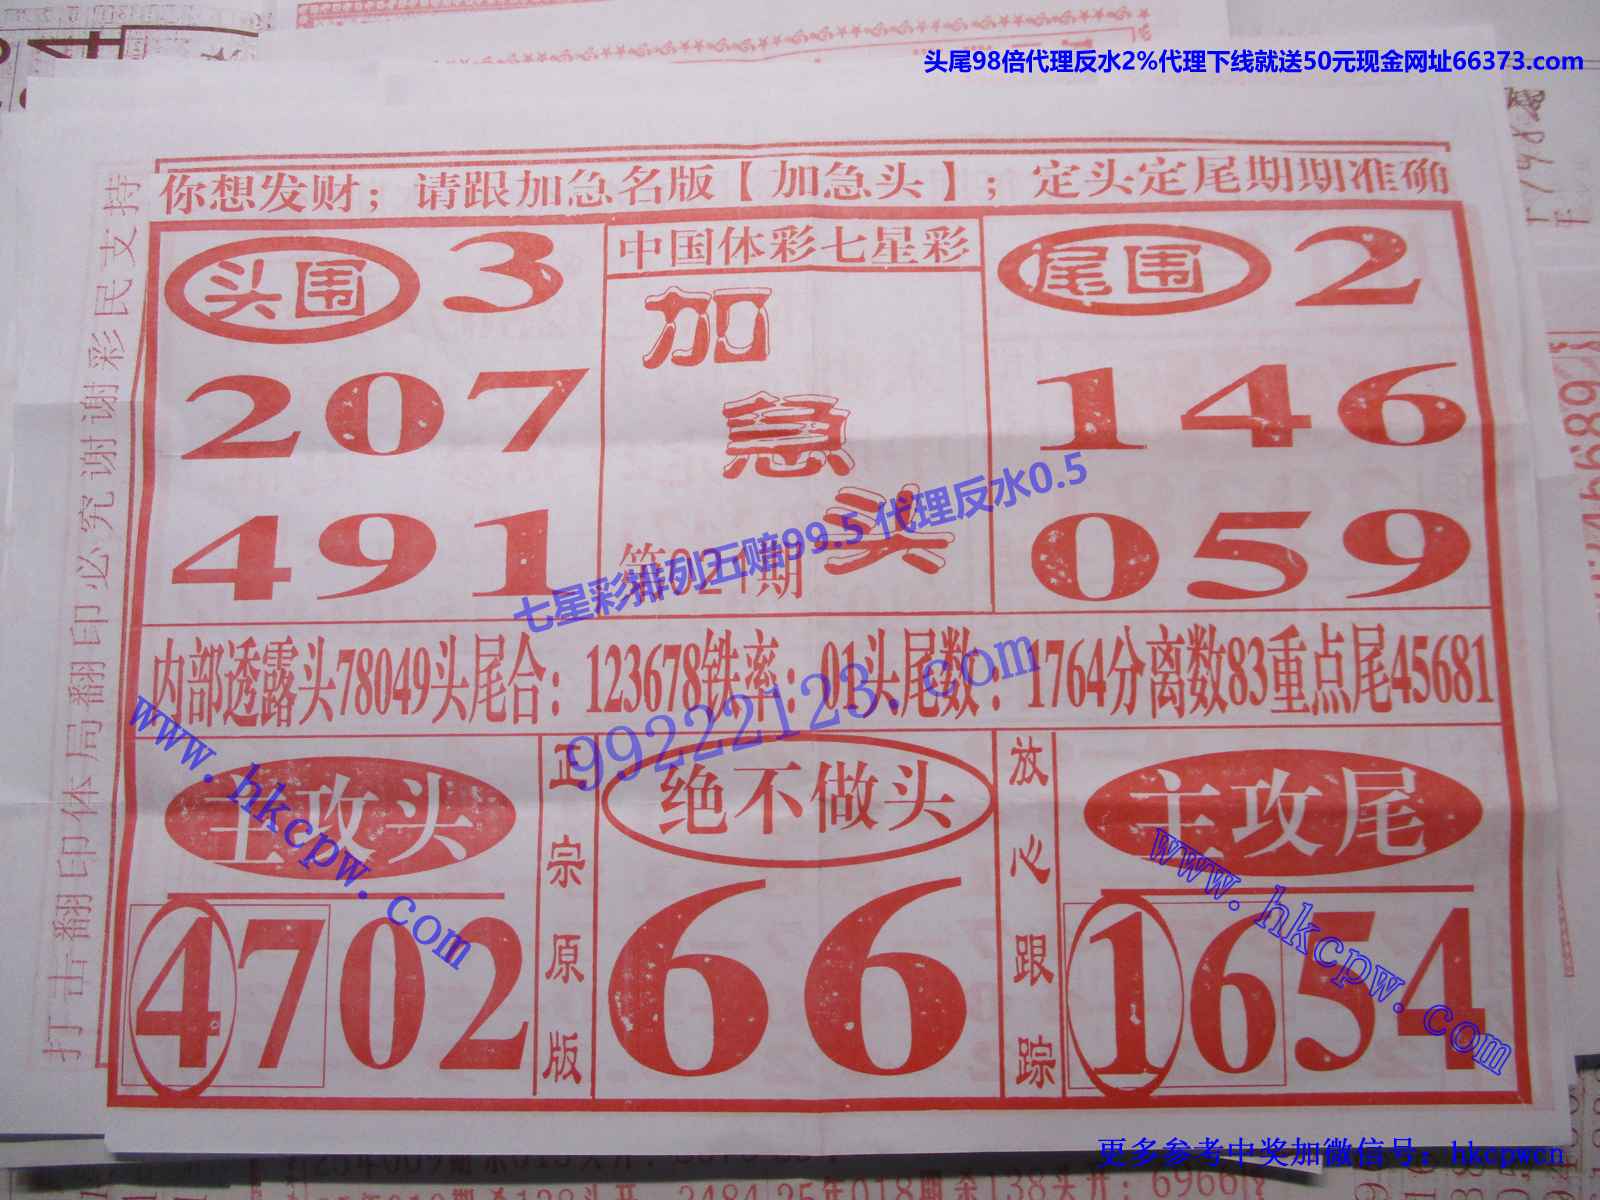 头尾98倍代理反水2%代理下线就送50元现金网址66373.com
你想发财；请跟加急名版【加急头】；定头定尾期期准确
打击翻印体局翻印必究谢谢彩民支持
头围 3
207
491
中国体彩七星彩
加急头
尾围 2
146
059
七星彩排列五赔99.5 代理反水0.5
内部透露头78049头尾合：123678铁率：01头尾数：1764分离数83重点尾45681
99222123.com
www.hkcpw.com
主攻头
4702
正宗原版
绝不做头
66
放心跟踪
主攻尾
1654
www.hkcpw.com
更多参考中奖加微信号：hkcpwcn